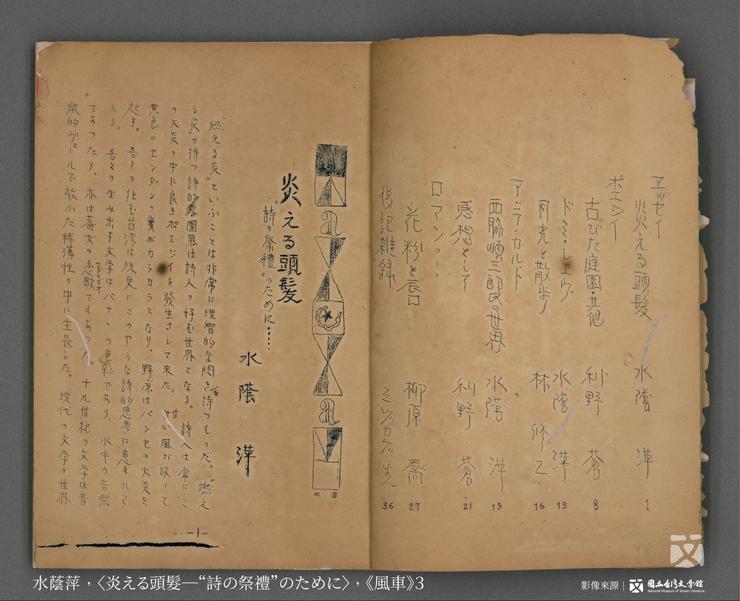 エッセイ
炎える頭髪 水蔭萍 1
ポエジイ
古びた庭園・其他 利野蒼 8
ドミ・レエヴ 水蔭萍 13
月光と散歩 林修二 16
アニア・カルト
西脇順三郎の世界 水蔭萍 19
感想として 利野蒼 21
ロマン
花粉と唇 柳原喬 27
後記雑録 36
炎える頭髪
"詩の祭禮"のために……
水蔭萍
"燃える炎"といふことは非常に理智的な閃を持つものだ。燃え
る炎の持つ詩的雰囲気は詩人の好む世界となる。詩人は常にこ
の火炎の中に良きポエジイを発生させて来た。
黄色いセンダンの実がカラカラとなり、野原はパンセの火炎を
起す。吾々の住む台湾は殊更にこのやうな詩的思考に恵まれて
ゐる。吾々の生み出す文学はバナナの色彩であり、水牛の音楽
であつたり、亦は蕃女の恋歌でもあつた。十九世紀の文学は音
楽的ヴェールで蔽つた稀薄性の中に生長した。現代の文学の世界
—1—
水蔭萍，〈炎える頭髮—“詩の祭禮”のために〉，《風車》3
影像來源｜國立台灣文學館
National Museum of Taiwan Literature